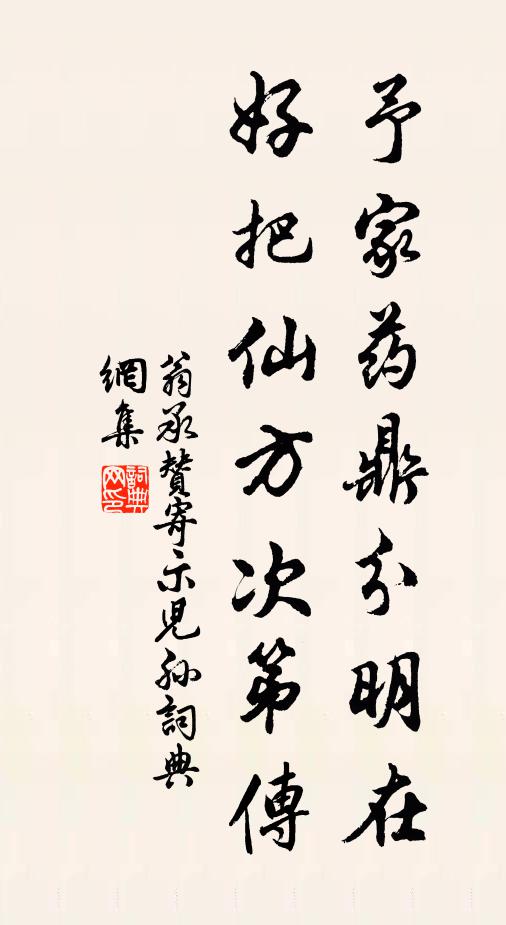 予家药鼎分明在
好把仙方次第傳
翁承贊寄示兒孫詞典
網集
詞典網印